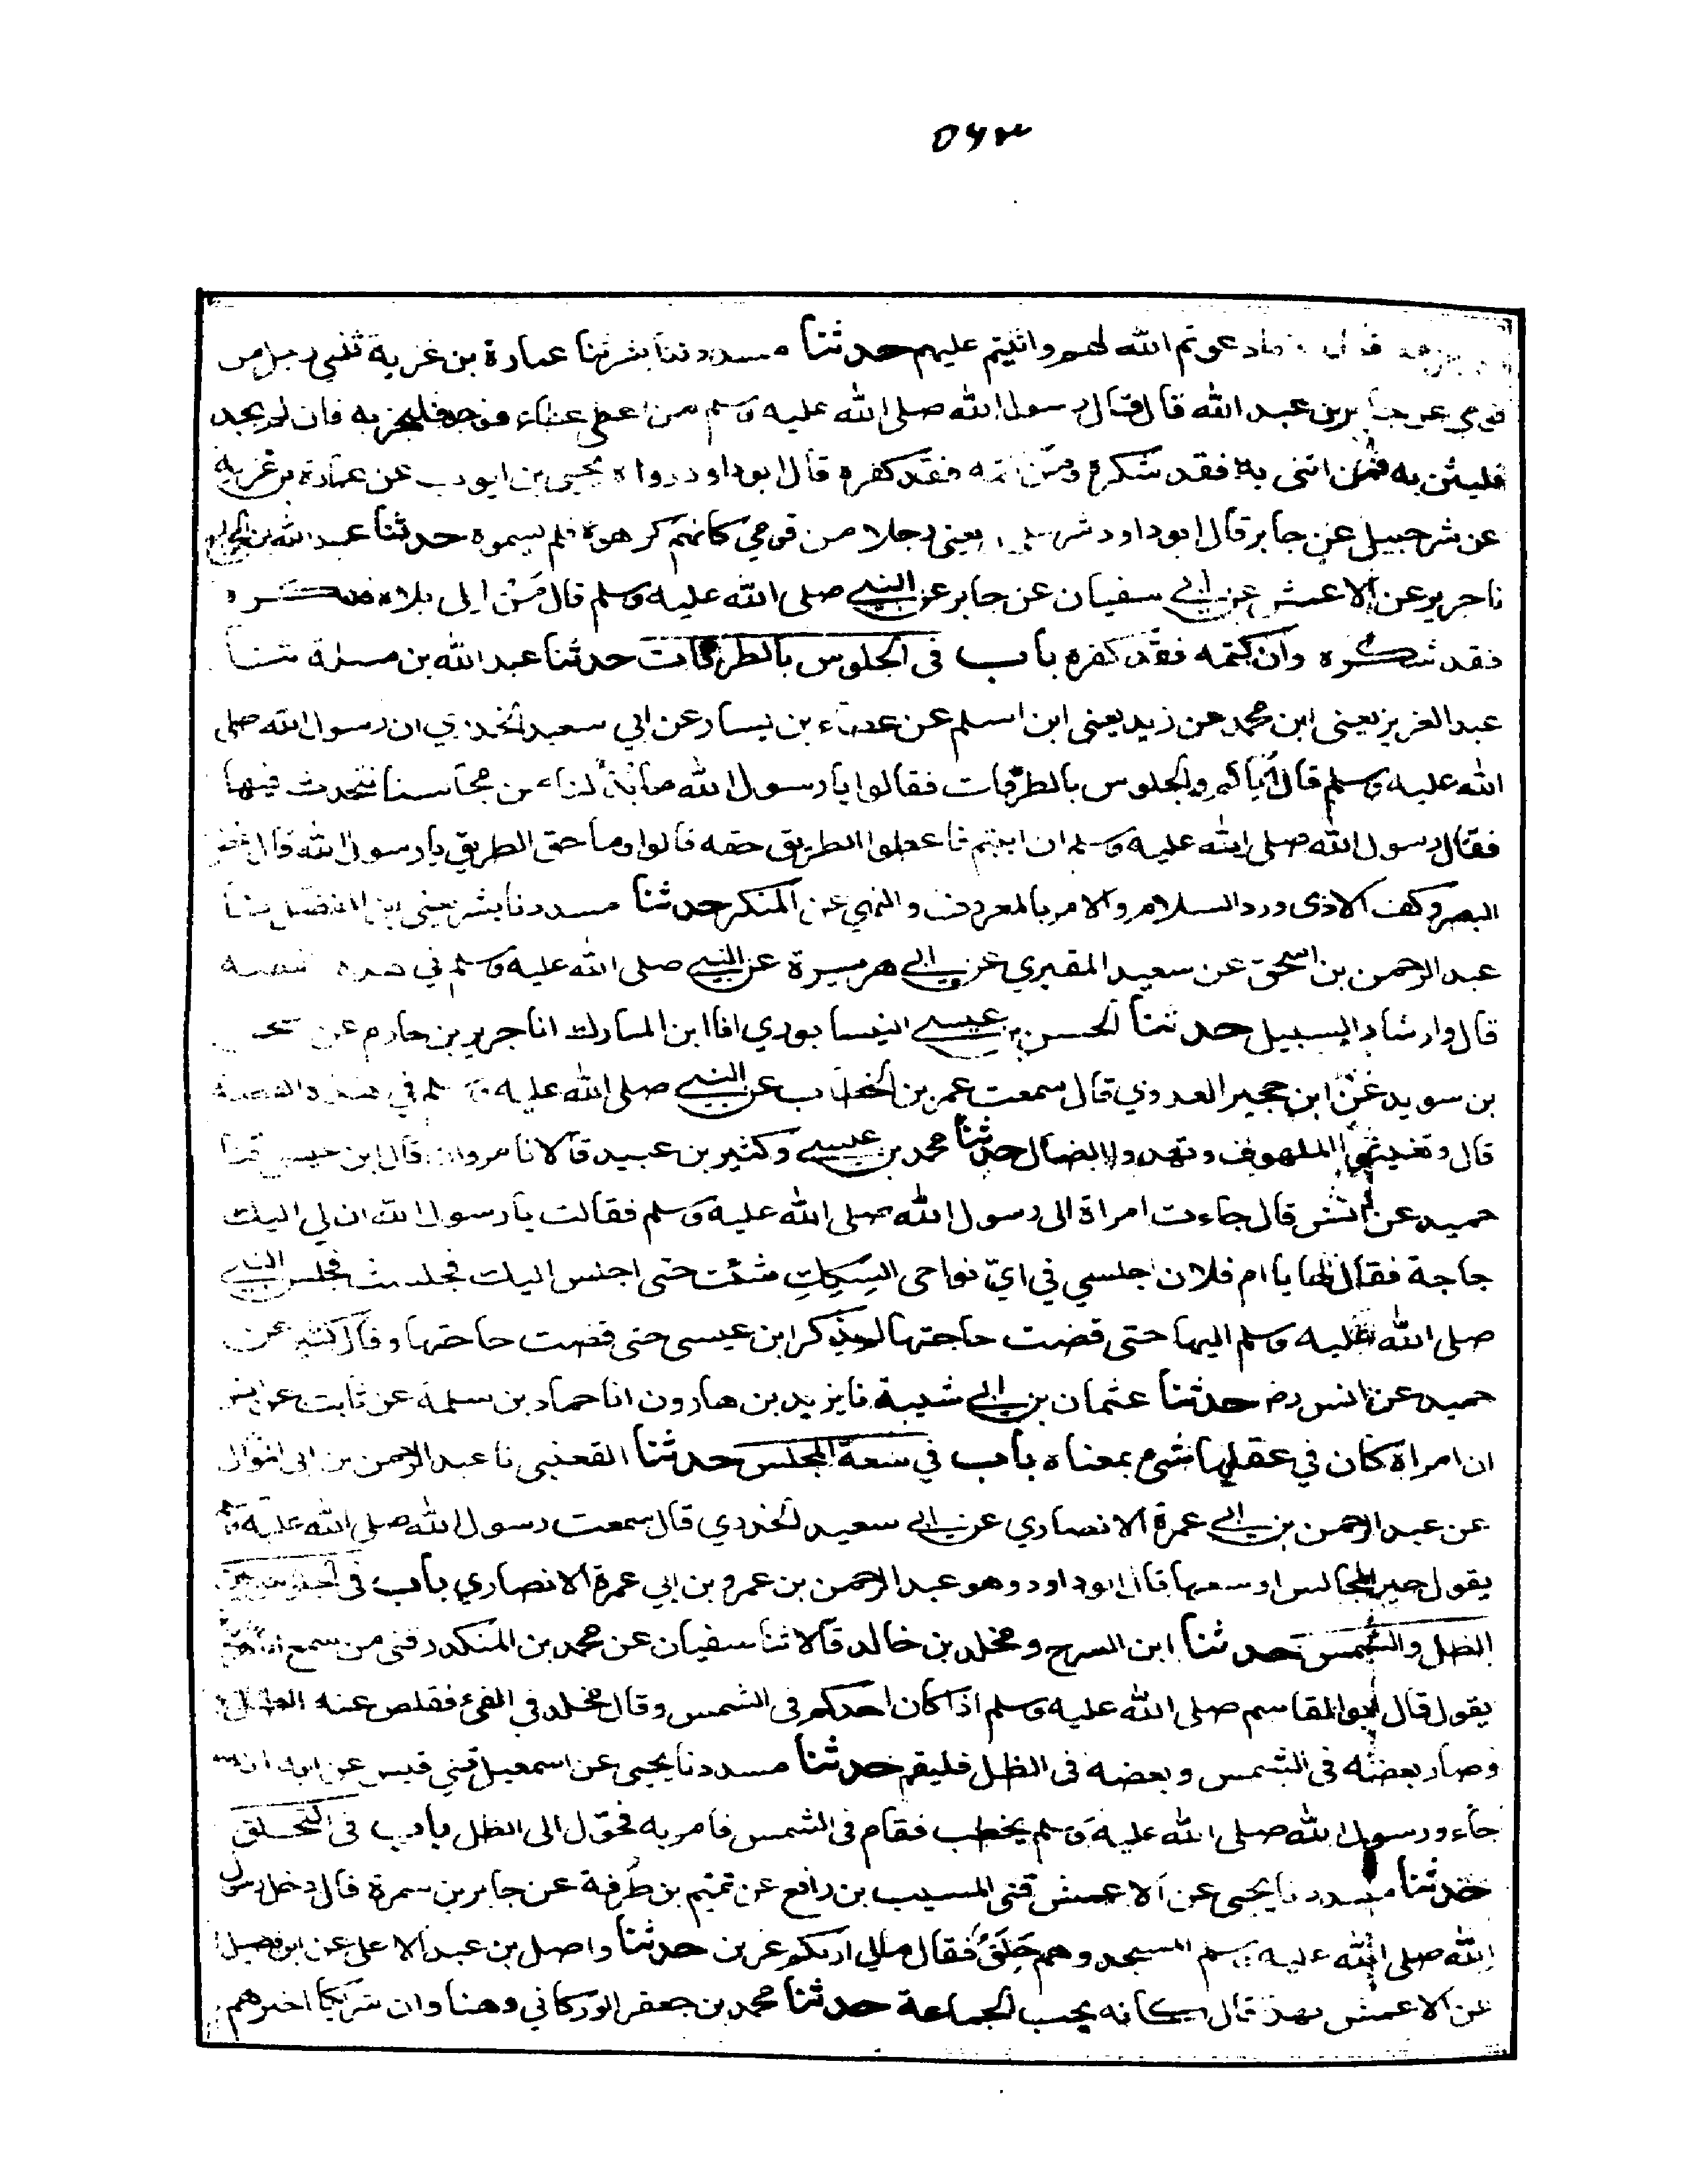 ٥٦٣
ما دعوتم الله لهم واثنيتم عليهم حدثنا مسدد ثنا بشر ثنا عمارة بن غزية ثني رجل من
قومي عن جابر بن عبد الله قال قال رسول الله صلى الله عليه وسلم من اعطى عطاء فوجد فليجز به فان لم يجد
فليثن به فمن اثنى به فقد شكره ومن كتمه فقد كفره قال ابو داود رواه يحيى بن ايوب عن عمارة بن غزية
عن شرحبيل عن جابر قال ابو داود شرحبيل يعني رجلا من قومي كانهم كرهوه فلم يسموه حدثنا عبد الله بن الجراح
نا جرير عن الاعمش عن ابي سفيان عن جابر عن النبي صلى الله عليه وسلم قال مَنْ ابلى بلاء فذكره
فقد شكره وان كتمه فقد كفره باب في الجلوس بالطرقات حدثنا عبد الله بن مسلمة ثنا
عبد العزيز يعني ابن محمد عن زيد يعني ابن اسلم عن عطاء بن يسار عن ابي سعيد الخدري ان رسول الله صلى
الله عليه وسلم قال اياكم والجلوس بالطرقات فقالوا يا رسول الله ما بُدٌّ لنا من مجالسنا نتحدث فيها
فقال رسول الله صلى الله عليه وسلم ان ابيتم فاعطوا الطريق حقه قالوا وما حق الطريق يا رسول الله قال غض
البصر وكف الاذى ورد السلام والامر بالمعروف والنهي عن المنكر حدثنا مسدد نا بشر يعني ابن المفضل ثنا
عبد الرحمن بن اسحق عن سعيد المقبري عن ابي هريرة عن النبي صلى الله عليه وسلم في هذه القصة
قال وارشاد السبيل حدثنا الحسن بن عيسى النيسابوري انا ابن المبارك انا جرير بن حازم عن
بن سويد عن ابن حجير العدوي قال سمعت عمر بن الخطاب عن النبي صلى الله عليه وسلم في هذه القصة
قال وتغيثوا الملهوف وتهدوا الضال حدثنا محمد بن عيسى وكثير بن عبيد قالا نا مروان قال ابن عيسى قال
حميد عن انس قال جاءت امراة الى رسول الله صلى الله عليه وسلم فقالت يا رسول الله ان لي اليك
حاجة فقال لها يا ام فلان اجلسي في ايّ نواحي السِّككِ شئت حتى اجلس اليك فجلست فجلس النبي
صلى الله عليه وسلم اليها حتى قضت حاجتها لم يذكر ابن عيسى حتى قضت حاجتها وقال كثير عن
حميد عن انس رض حدثنا عثمان بن ابي شيبة نا يزيد بن هارون انا حماد بن سلمة عن ثابت عن انس
ان امراة كان في عقلها شيء بمعناه باب في سعة المجلس حدثنا القعنبي نا عبد الرحمن بن ابي الموال
عن عبد الرحمن بن ابي عمرة الانصاري عن ابي سعيد الخدري قال سمعت رسول الله صلى الله عليه وسلم
يقول خير المجالس اوسعها قال ابو داود وهو عبد الرحمن بن عمرو بن ابي عمرة الانصاري باب في الجلوس بين
الظل والشمس حدثنا ابن السرح ومخلد بن خالد قالا ثنا سفيان عن محمد بن المنكدر قني من سمع
يقول قال ابو القاسم صلى الله عليه وسلم اذا كان احدكم في الشمس وقال مخلد في الفيء فقلص عنه الظل
وصار بعضه في الشمس وبعضه في الظل فليقم حدثنا مسدد نا يحيى عن اسمعيل قني قيس عن ابيه انه
جاء ورسول الله صلى الله عليه وسلم يخطب فقام في الشمس فامر به فحوّل الى الظل باب في التحلق
حدثنا مسدد نا يحيى عن الاعمش قني المسيب بن رافع عن تميم بن طرفة عن جابر بن سمرة قال دخل رسول
الله صلى الله عليه وسلم المسجد وهم حِلَقٌ فقال مالي اراكم عزين حدثنا واصل بن عبد الاعلى عن ابن فضيل
عن الاعمش بهذا قال كانه يحب الجماعة حدثنا محمد بن جعفر الوركاني وهنا وان شريكا اخبرهم